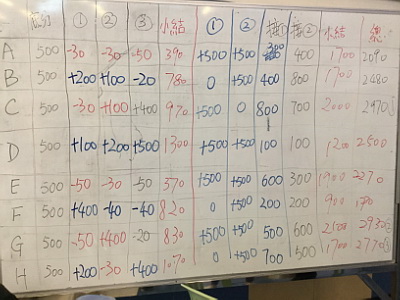 底分 ① ② ③ 小結 ① ② 接① 接② 小結 總
A 500 -30 -30 -50 390 +500 +500 300 400 1700 2090
B 500 +200 +100 -20 780 0 +500 400 800 1700 2480
C 500 -30 +100 +400 970 +500 0 800 700 2000 2970
D 500 +100 +200 +500 1300 +500 +500 100 100 1200 2500
E 500 -50 -30 -50 370 +500 +500 600 300 1900 2270
F 500 +400 -40 -40 820 0 +500 200 200 900
G 500 -50 +400 -20 830 +500 +500 500 600 2100 2930
H 500 +200 -30 +400 1070 0 +500 700 500 1700 2770